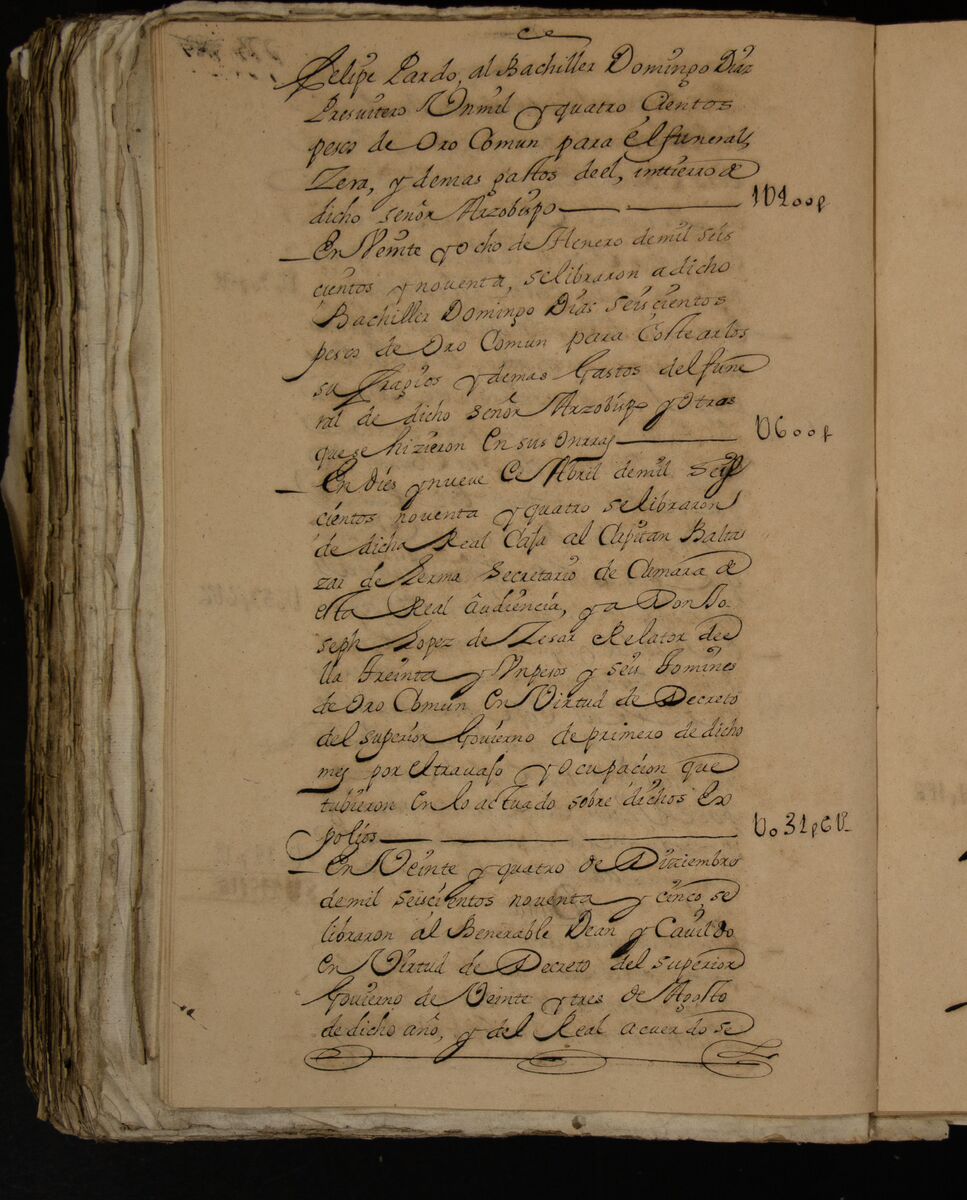 Felipe Pardo, al Bachiller Domingo Diaz
Presvitero Vnmil y quatro Cientos
pesos de Oro Comun para el funeral,
Zera, y demas gastos deel, intierro de
dicho señor Arzobispo
En Veinte y Ocho de Henero demil seis
cientos y noventa, selibraron adicho
Bachiller Domingo Dias seiscientos
pesos de Oro Comun para Costearlos
sufragios y demas Gastos del fune
ral de dicho señor Arzobispo y Otras
quese hizieron En sus Onrras U600p
En dies y nueve de Abril demil seis
cientos noventa y quatro selibraron
de dicha Real Caja al Capitan Balta
zar de Lerma Secretario de Camara de
esta Real Audiencia, y a Don Jo
seph Lopez de Resar Relator de
lla treinta y Vnpesos y seis tomines
de Oro Comun En Virtud de Decreto
del superior Govierno de primero de dicho
mes por el travajo y Ocupacion que
tubieron En lo actuado sobre dichos Ex
polios U031p6
En Veinte y quatro de Diziembre
demil seiscientos noventa y cinco, se
libraron al Benerable Dean y Cavildo
En Virtud de Decreto del superior
Govierno de Veinte y tres de Agosto
dedicho año, y del Real acuerdo se